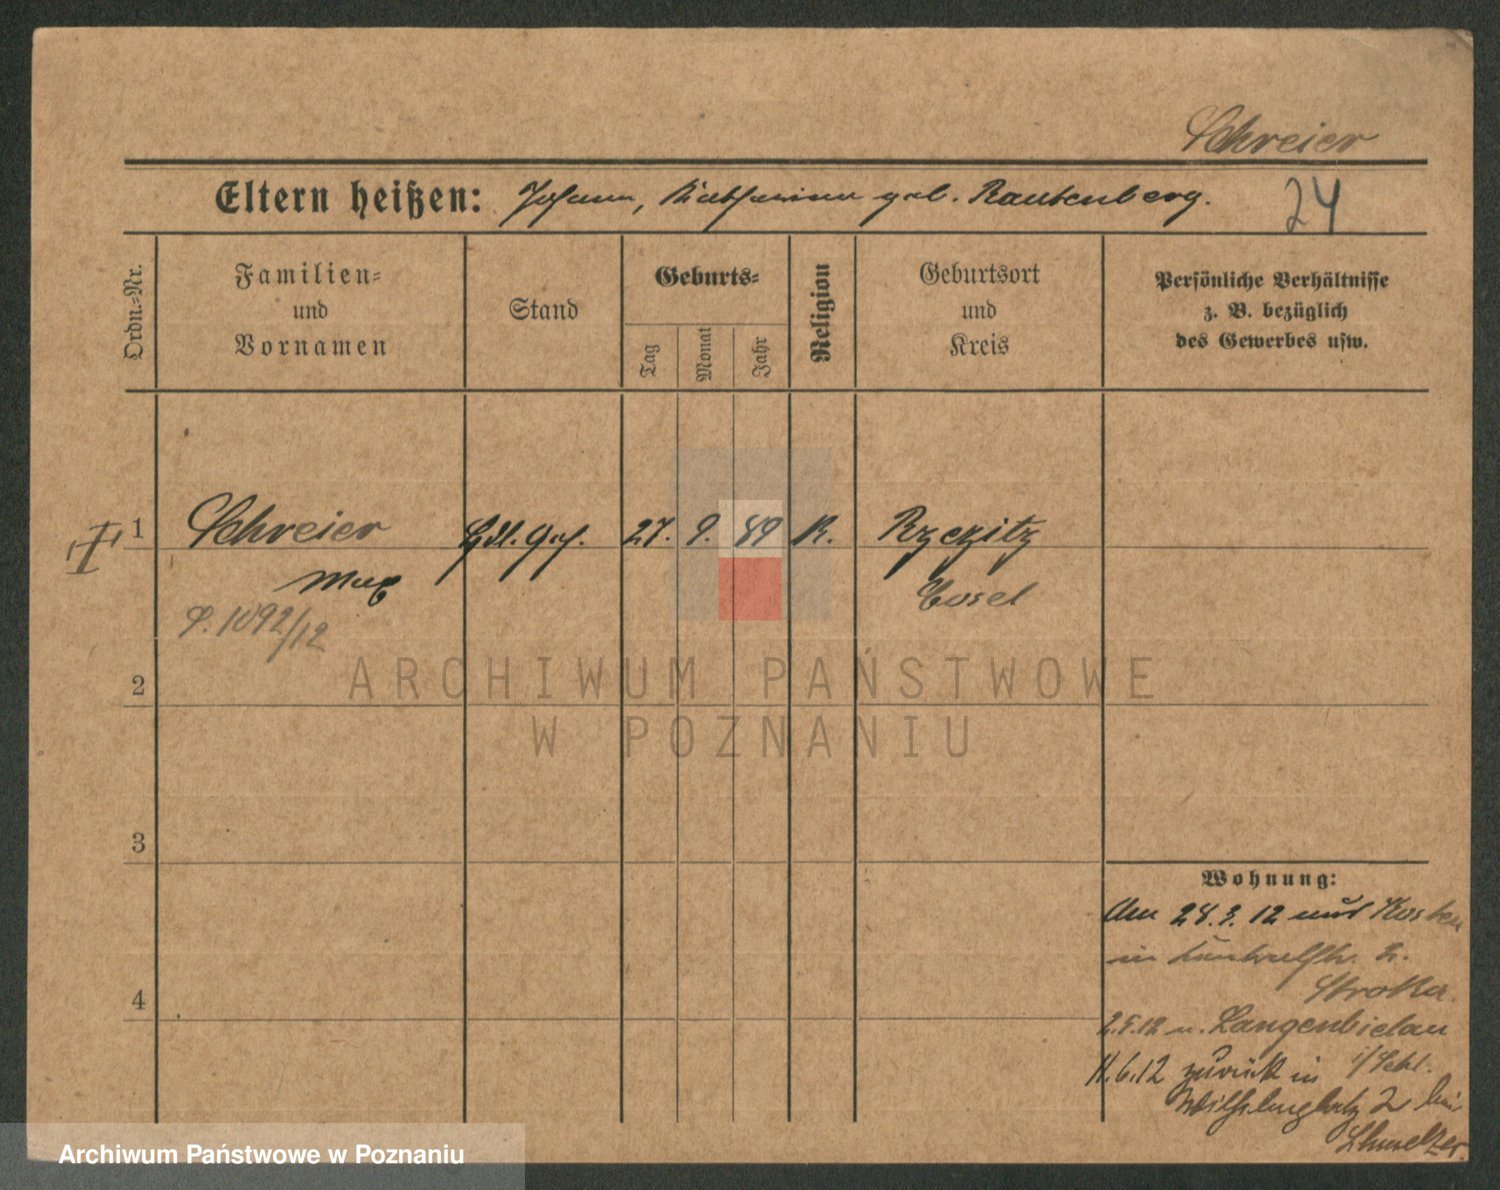 Schreier
Eltern heißen: Johann, Katharina geb. Rautenberg.
24
Ordn.=Nr.
Familien=
und
Vornamen
Stand
Geburts=
Tag
Monat
Jahr
Religion
Geburtsort
und
Kreis
Persönliche Verhältnisse
z. B. bezüglich
des Gewerbes usw.
1
Schreier
Hdl. Geh.
27.
9.
89
K.
Rzezitz
Max
Cosel
P. 1092/12
2
3
4
Wohnung:
Am 28.3.12 aus Kosten
in
2.5.12 n. Langenbielau
i/Schl.
11.6.12 zurück in
Wilhelmplatz 2 bei
Schmelzer.
ARCHIWUM PAŃSTWOWE
W POZNANIU
Archiwum Państwowe w Poznaniu